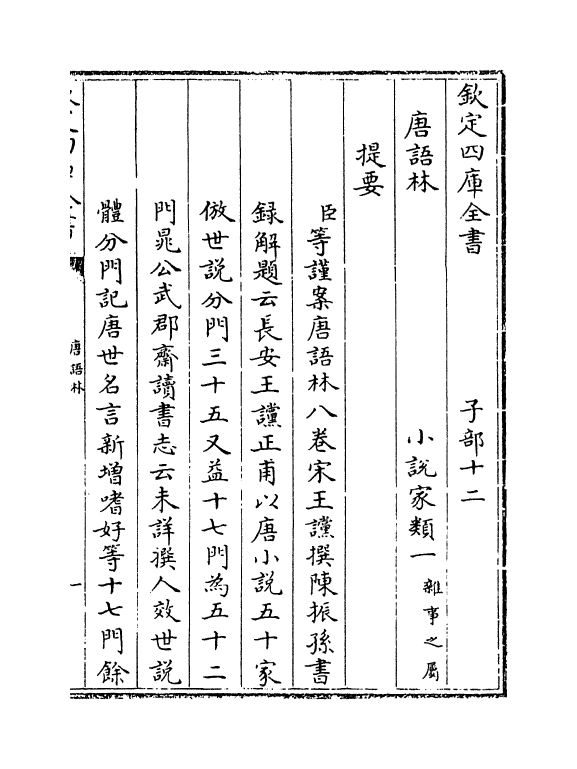 欽定四庫全書　子部十二
唐語林　小說家類一雜事之屬
提要
臣等謹案唐語林八卷宋王讜撰陳振孫書
録解題云長安王讜正甫以唐小說五十家
倣世說分門三十五又益十七門為五十二
門晁公武郡齋讀書志云未詳撰人效世說
體分門記唐世名言新增嗜好等十七門餘
唐語林　一